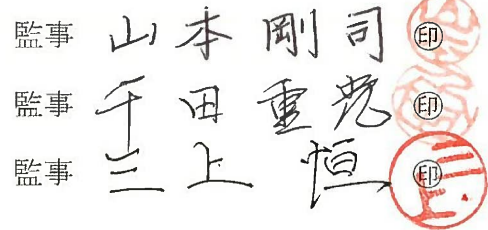 監事 山本剛司 ㊞
監事 千田重光 ㊞
監事 三上恒 ㊞
三上